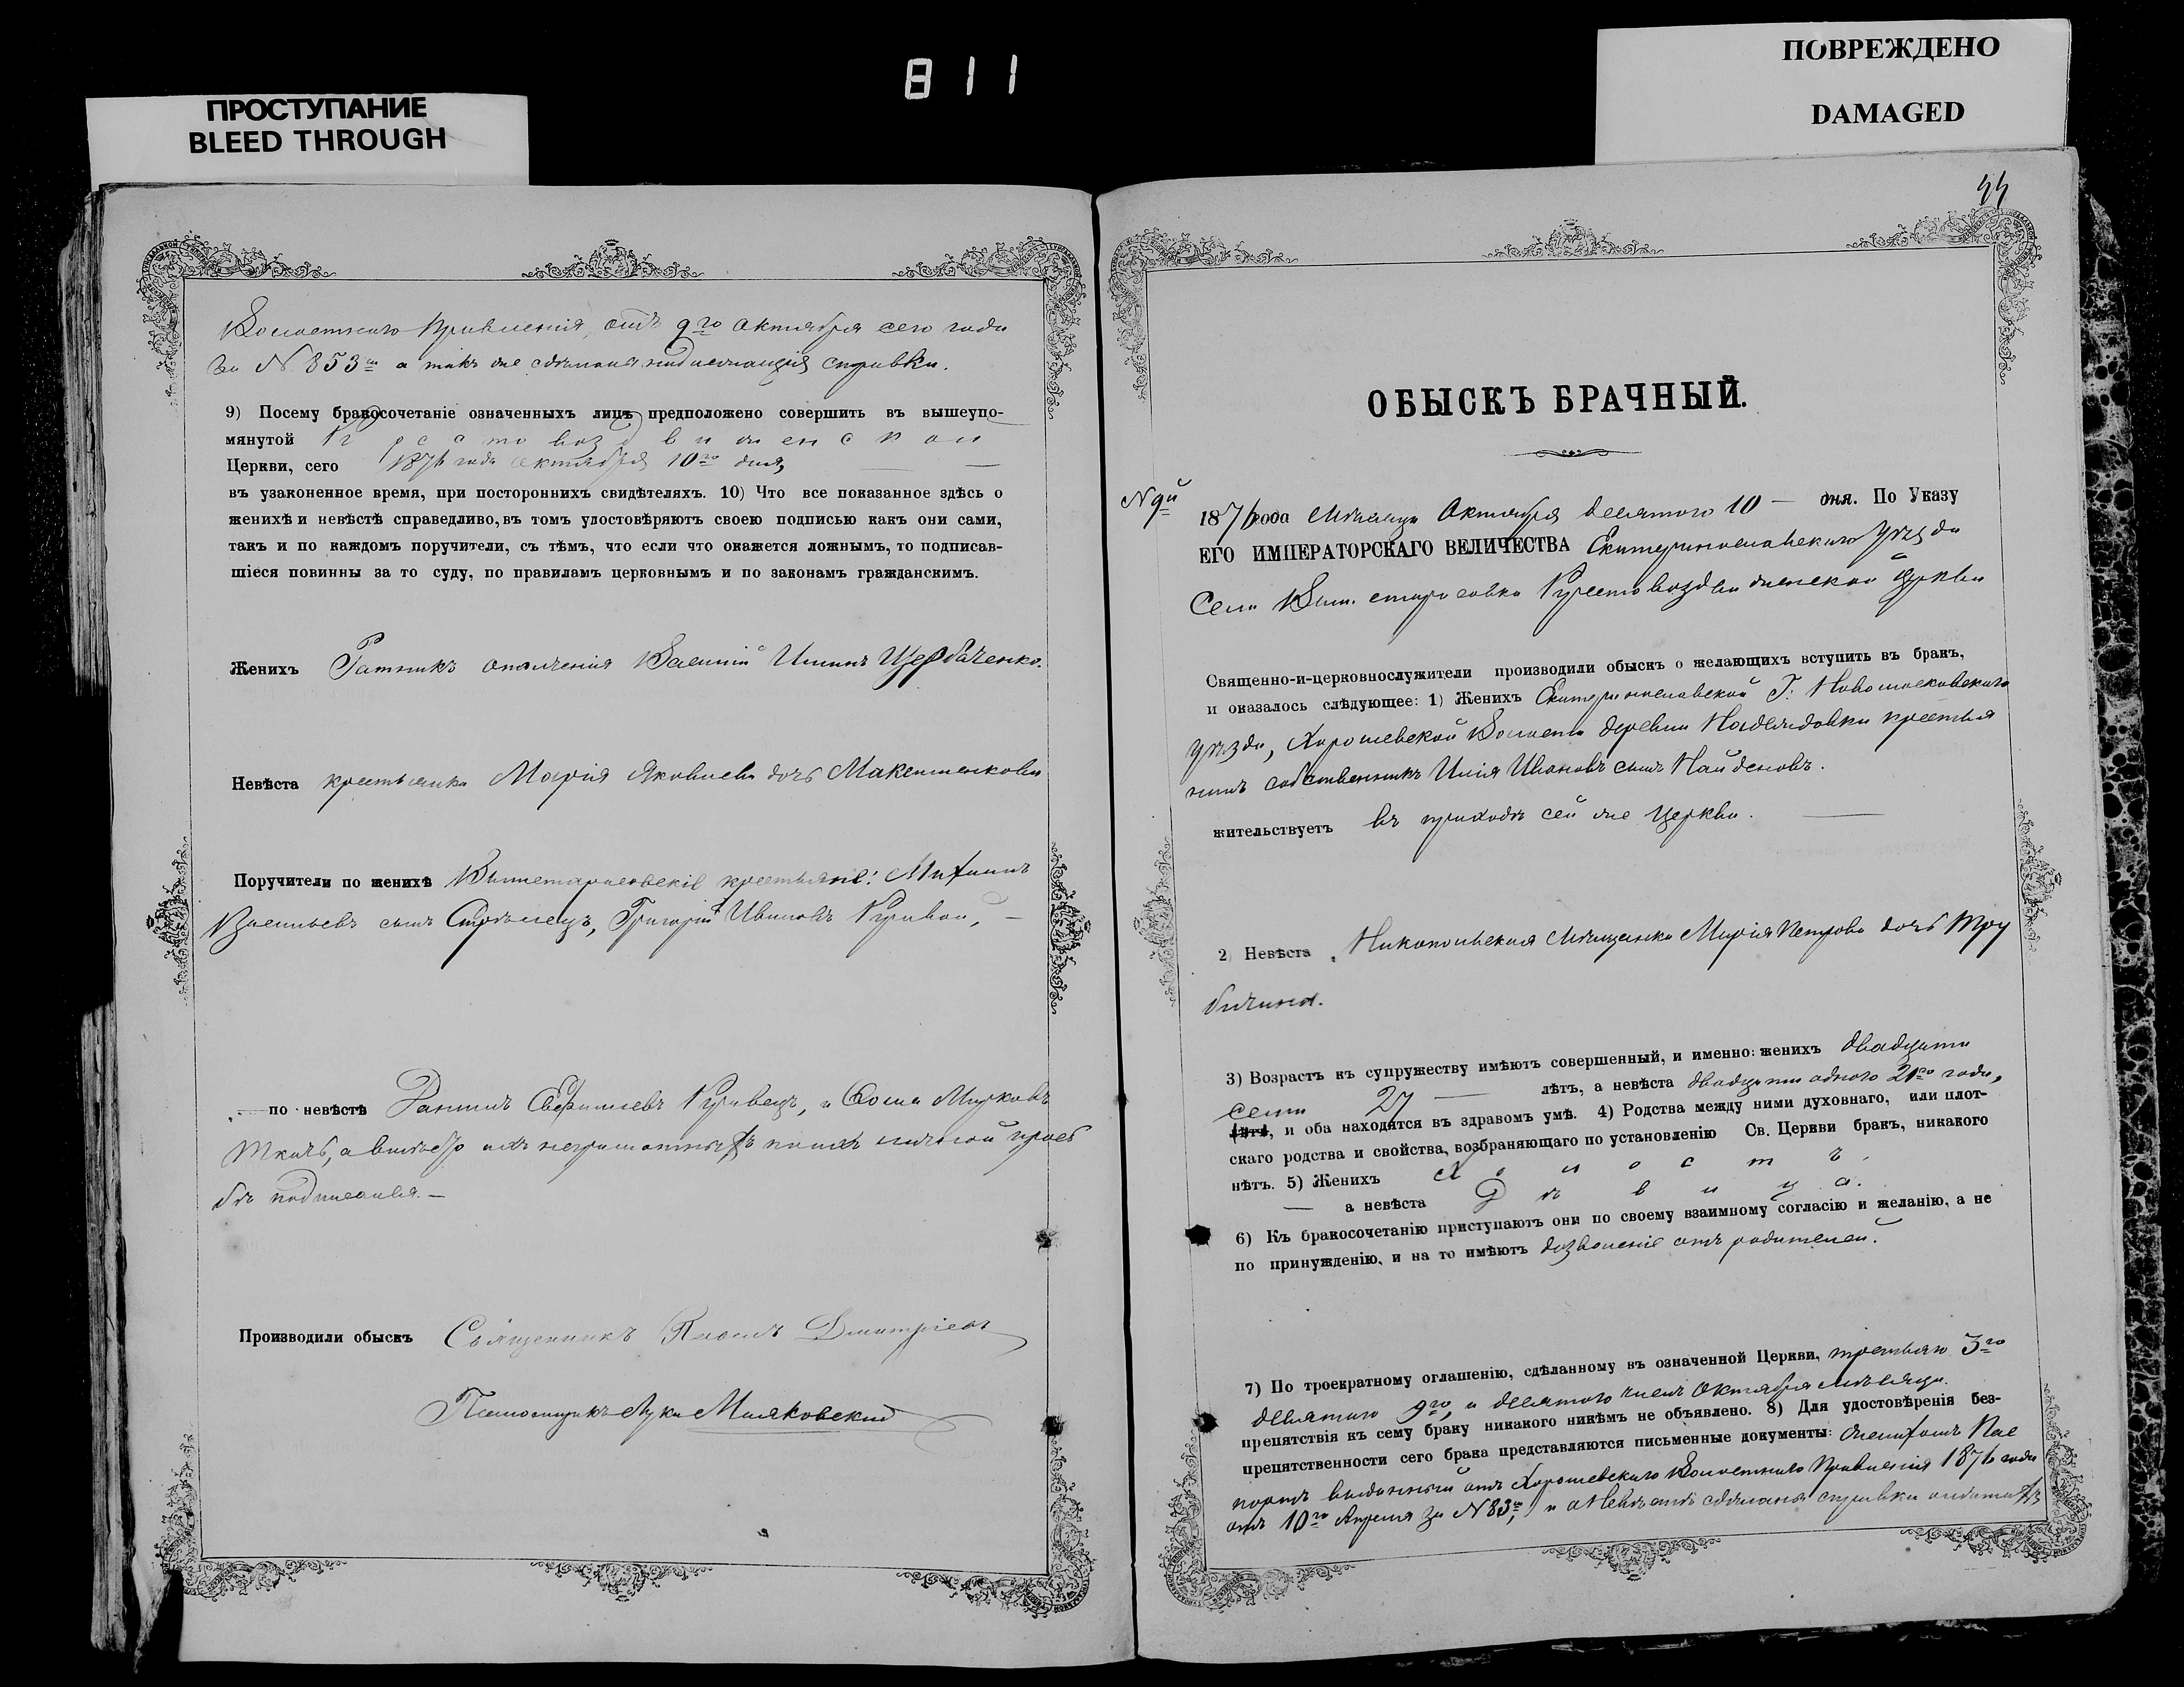 811
ПРОСТУПАНИЕ
BLEED THROUGH
ПОВРЕЖДЕНО
DAMAGED
Волостнаго Правленія, отъ 9го Октября сего года
за N. 853м а такъ же сдѣланы надлежащія справки.
9) Посему бракосочетаніе означенныхъ лицъ предположено совершить въ вышеупо-
мянутой Крестовоздвиженской
Церкви, сего 1876 года Октября 10го дня,
въ узаконенное время, при постороннихъ свидѣтеляхъ. 10) Что все показанное здѣсь о
женихѣ и невѣстѣ справедливо, въ томъ удостовѣряютъ своею подписью какъ они сами,
такъ и по каждомъ поручители, съ тѣмъ, что если что окажется ложнымъ, то подписав-
шіеся повинны за то суду, по правиламъ церковнымъ и по законамъ гражданскимъ.
Женихъ Ратникъ ополченія Василій Щербаченко.
Невѣста крестьянка Марія Яковлева дочь
Поручители по женихѣ крестьяне: Михаилъ
Васильевъ сынъ Григорій Ивановъ Кривой,
по невѣстѣ Кривецъ, и Марковъ
Ткачъ, а вмѣсто ихъ неграмотныхъ по ихъ личной прось
бѣ подписался.
Производили обыскъ Священникъ Павелъ Дмитріевъ
Псаломщикъ Лука Маляковскій
44
ОБЫСКЪ БРАЧНЫЙ.
N 9й
1876 года Мѣсяца Октября десятого 10 — дня. По Указу
ЕГО ИМПЕРАТОРСКАГО ВЕЛИЧЕСТВА Екатеринославскаго Уѣзда
Села Крестовоздвиженской Церкви
Священно-и-церковнослужители производили обыскъ о желающихъ вступить въ бракъ,
и оказалось слѣдующее: 1) Женихъ Екатеринославской Г. Новомосковскаго
уѣзда, Хорошевской Волости деревни крестья
нинъ собственникъ Илія Ивановъ сынъ Найденовъ.
жительствуетъ въ приходѣ сей же Церкви.
2 Невѣста Никопольская Мѣщанка Марія Петрова дочь Тру
бичина.
3) Возрастъ къ супружеству имѣютъ совершенный, и именно: женихъ двадцати
семи 27 — лѣтъ, а невѣста двадцати одного 21го года,
лѣтъ, и оба находятся въ здравомъ умѣ. 4) Родства между ними духовнаго, или плот-
скаго родства и свойства, возбраняющаго по установленію Св. Церкви бракъ, никакого
нѣтъ. 5) Женихъ Холостъ.
— а невѣста Дѣвица.
6) Къ бракосочетанію приступаютъ они по своему взаимному согласію и желанію, а не
по принужденію, и на то имѣютъ дозволеніе отъ родителей.
7) По троекратному оглашенію, сдѣланному въ означенной Церкви, третьяго 3го
девятаго 9го, и десятого числъ Октября мѣсяца.
препятствія къ сему браку никакого никѣмъ не объявлено. 8) Для удостовѣренія без-
препятственности сего брака представляются письменные документы: женихомъ Пас
портъ выданный отъ Хорошевскаго Волостнаго Правленія 1876 года
отъ 10го Апреля за N 83м, и о Невѣстѣ сдѣланы справки